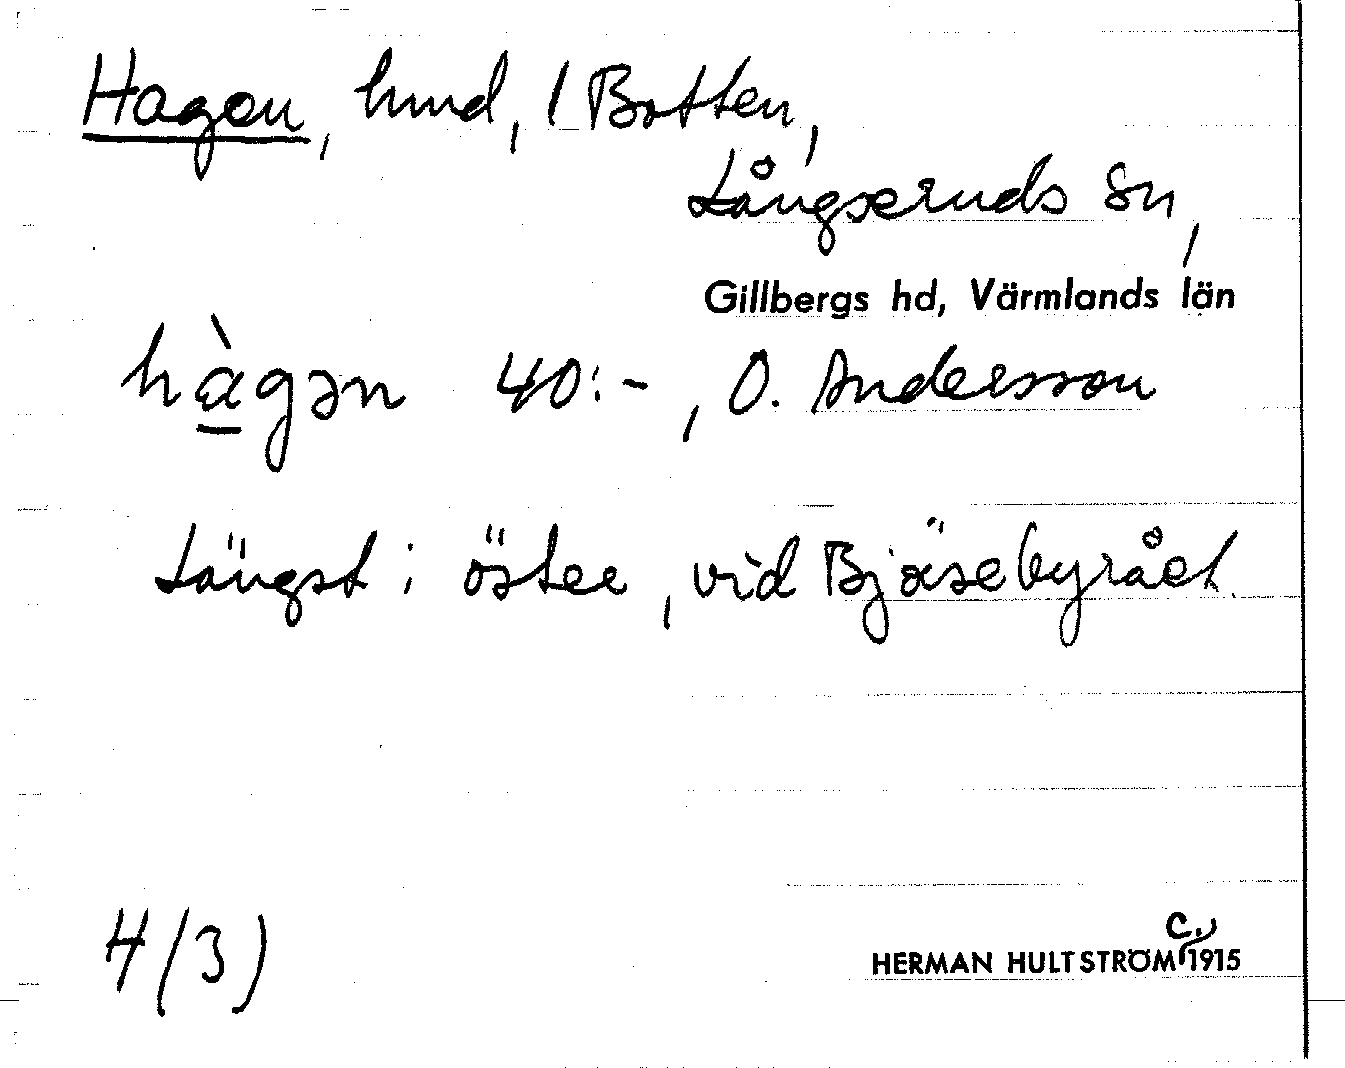 Hagen, hmd, 1 Botten,
Långseruds sn,
Gillbergs hd, Värmlands län
hàgən 40:-, O. Andersson
Längst i öster, vid Bjäsebyrået.
4/3)
c.
HERMAN HULTSTRÖM 1915